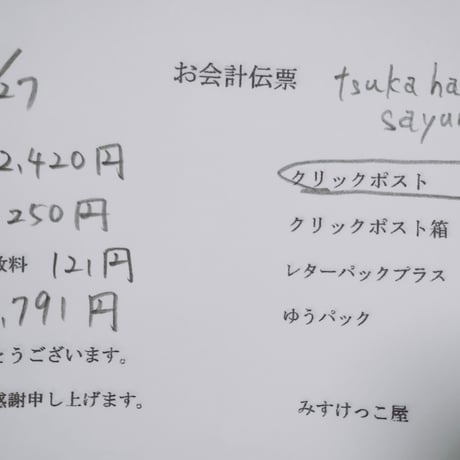 /27
お会計伝票
tsuka ha
sayu
2,420円
250円
料 121円
,791円
とうございます。
感謝申し上げます。
クリックポスト
クリックポスト箱
レターパックプラス
ゆうパック
みすけっこ屋